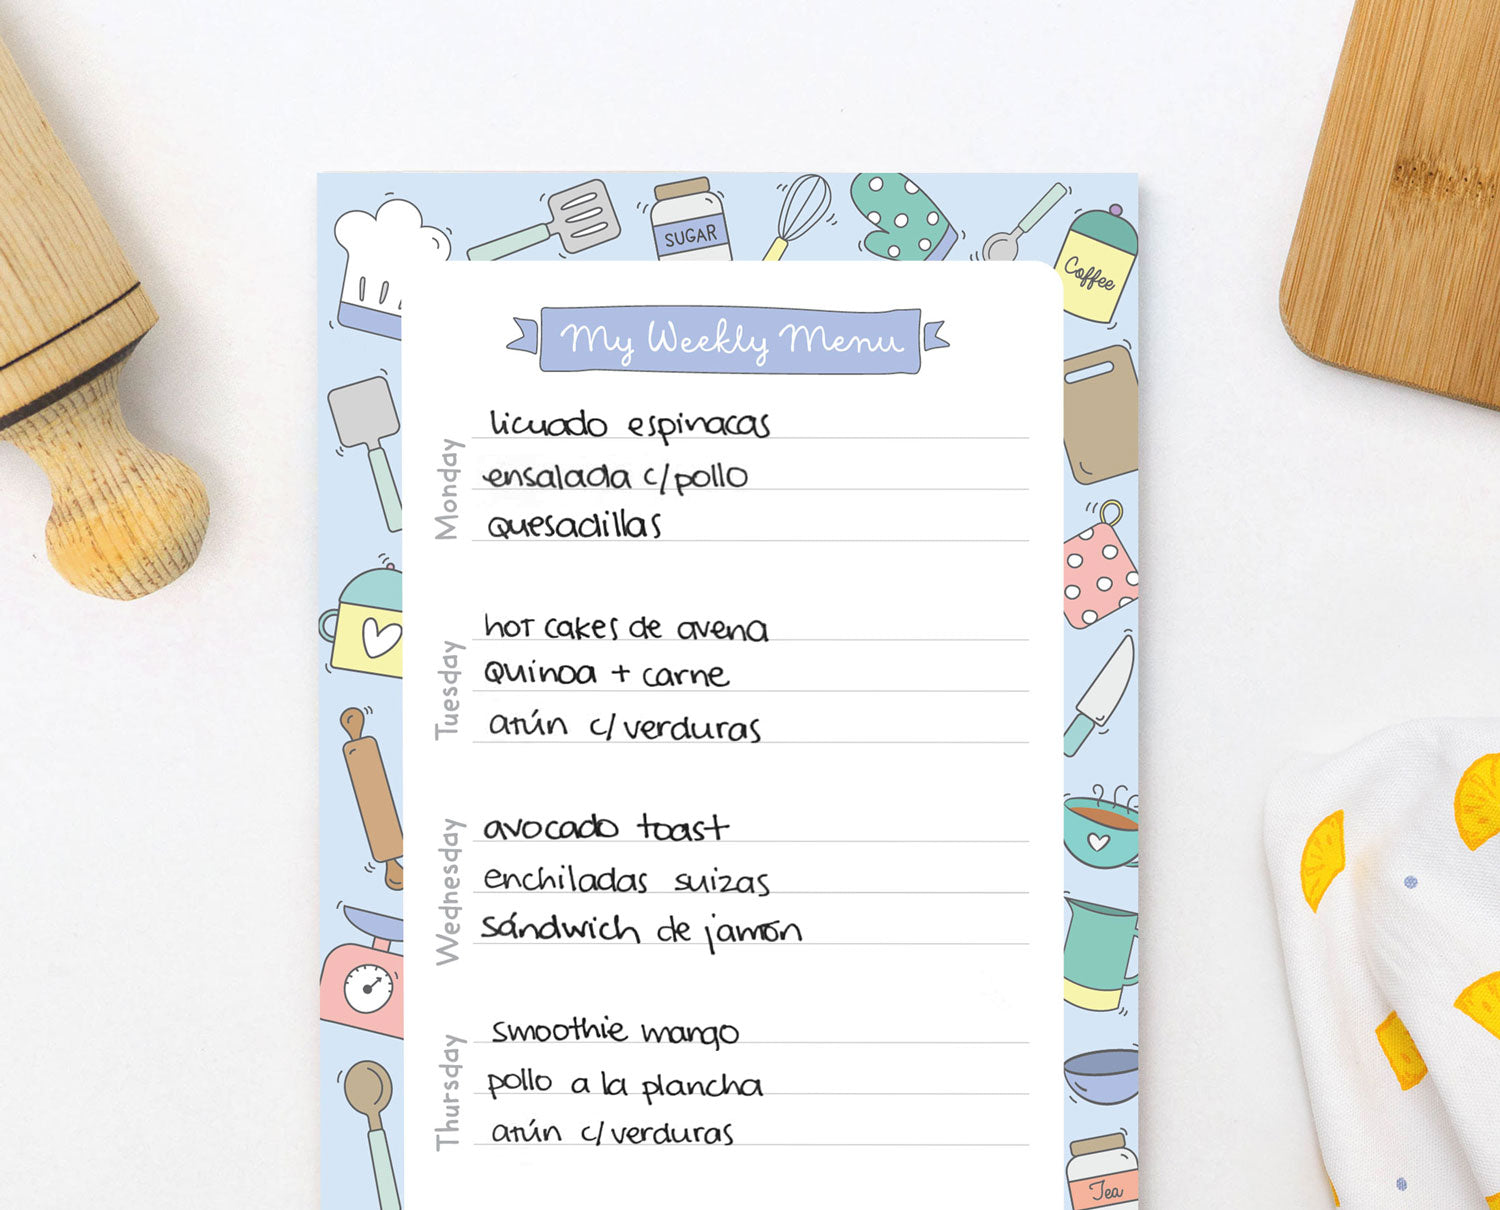 SUGAR
Coffee
My Weekly Menu
Monday
licuado espinacas
ensalada c/pollo
quesadillas
Tuesday
hot cakes de avena
quinoa + carne
atún c/verduras
Wednesday
avocado toast
enchiladas suizas
sándwich de jamón
Thursday
smoothie mango
pollo a la plancha
atún c/verduras
Tea